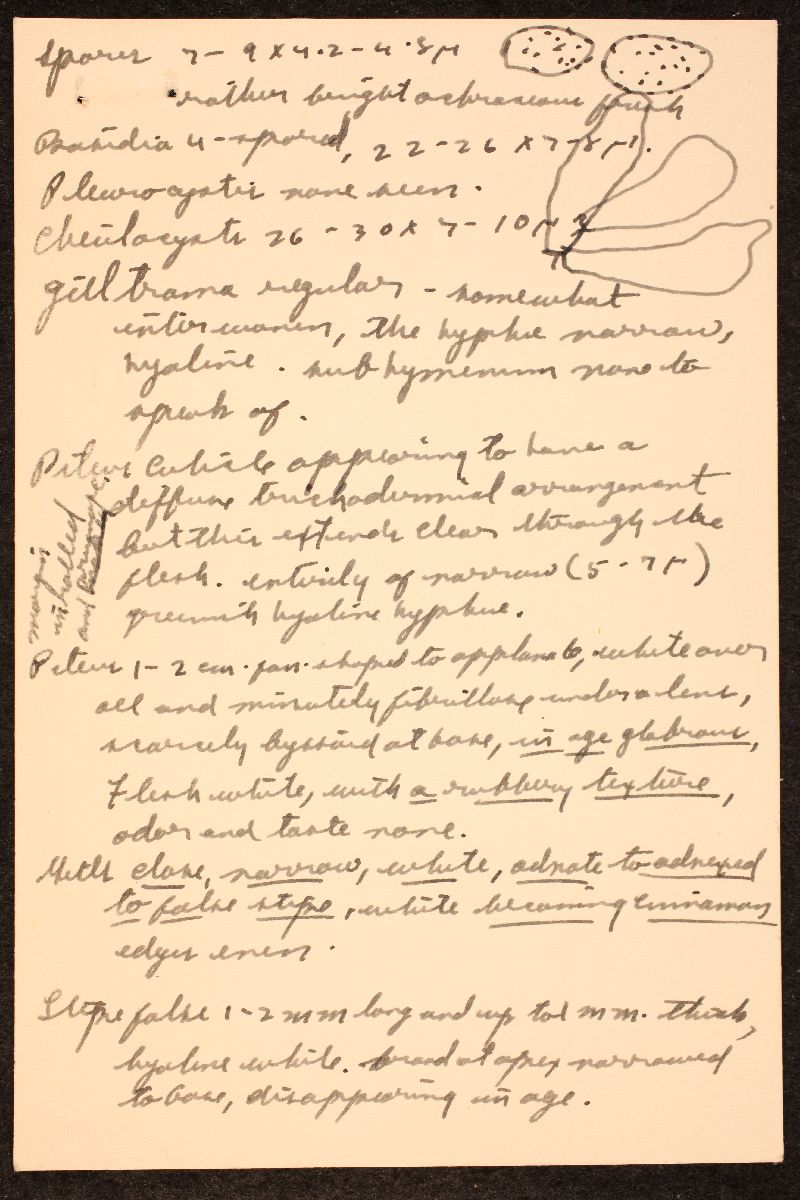 Spores 7 - 9 x 4.2 - 4.8µ
rather bright ochraceous fresh
Basidia 4-spored, 22-26 x 7-8µ.
Pleurocystis none seen.
Cheilocysts 26 - 30 x 7 - 10µ
gill trama regular - somewhat
interwoven, the hyphae narrow,
hyaline. subhymenium none to
speak of.
Pileus cuticle appearing to have a
diffuse trichodermial arrangement
but this extends clear through the
flesh. entirely of narrow (5-7µ)
greenish hyaline hyphae.
margin
inrolled
and
Pileus 1-2 cm. fan-shaped to applanate, white over
all and minutely fibrillose under a lens,
scarcely byssoid at base, in age glabrous,
Flesh white, with a rubbery texture,
odor and taste none.
Gills close, narrow, white, adnate to adnexed
to false stipe, white becoming cinnamon
edges even.
Stipe false 1-2 mm long and up to 1 mm. thick,
hyaline white. broad at apex narrowed
to base, disappearing in age.